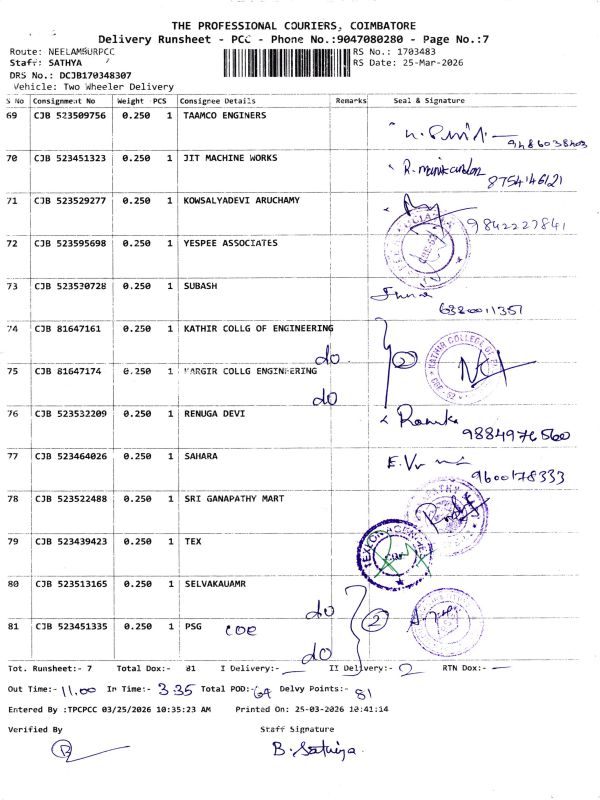 THE PROFESSIONAL COURIERS, COIMBATORE
Delivery Runsheet - PCC - Phone No.:9047080280 - Page No.:7
Route: NEELAMBURPCC
RS No.: 1703483
Staff: SATHYA
RS Date: 25-Mar-2026
DRS No.: DCJB170348307
Vehicle: Two Wheeler Delivery
S No Consignment No Weight PCS Consignee Details Remarks Seal & Signature
69 CJB 523509756 0.250 1 TAAMCO ENGINERS
9486038403
70 CJB 523451323 0.250 1 JIT MACHINE WORKS R. manikandan
8754146121
71 CJB 523529277 0.250 1 KOWSALYADEVI ARUCHAMY
9842227841
72 CJB 523595698 0.250 1 YESPEE ASSOCIATES
73 CJB 523530728 0.250 1 SUBASH
6380011351
74 CJB 81647161 0.250 1 KATHIR COLLG OF ENGINEERING
do 2 KATHIR COLLEGE OF
75 CJB 81647174 0.250 1 KARGIR COLLG ENGINEERING
do
76 CJB 523532209 0.250 1 RENUGA DEVI
9884976560
77 CJB 523464026 0.250 1 SAHARA
9600178333
78 CJB 523522488 0.250 1 SRI GANAPATHY MART
79 CJB 523439423 0.250 1 TEX
80 CJB 523513165 0.250 1 SELVAKAUAMR
do 2
81 CJB 523451335 0.250 1 PSG COE
do
Tot. Runsheet:- 7 Total Dox:- 81 I Delivery:- II Delivery:- RTN Dox:-
Out Time:- 11.00 In Time:- 3.35 Total POD:- 64 Delvy Points:- 81
Entered By :TPCPCC 03/25/2026 10:35:23 AM Printed On: 25-03-2026 10:41:14
Verified By Staff Signature
B. Sathiya.